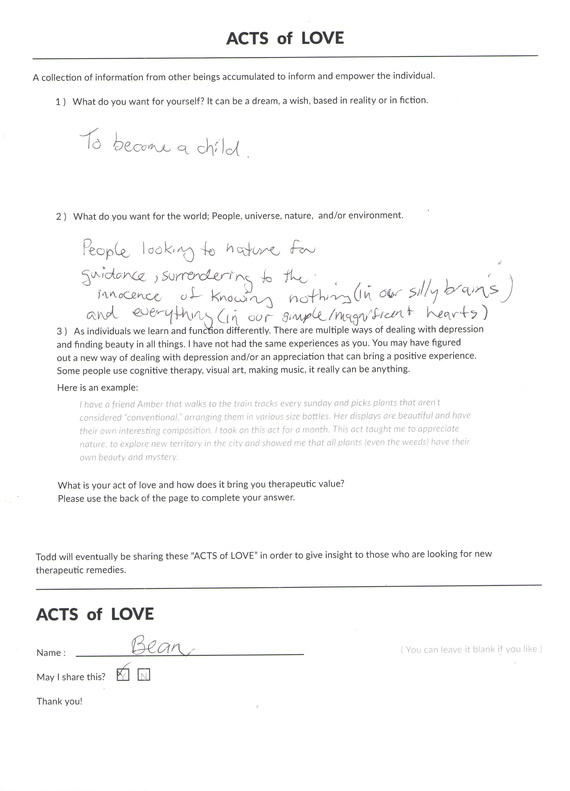 ACTS of LOVE
A collection of information from other beings accumulated to inform and empower the individual.
1 ) What do you want for yourself? It can be a dream, a wish, based in reality or in fiction.
To become a child.
2 ) What do you want for the world; People, universe, nature, and/or environment.
People looking to nature for
guidance, surrendering to the
innocence of knowing nothing (in our silly brains)
and everything (in our simple/magnificent hearts)
3 ) As individuals we learn and function differently. There are multiple ways of dealing with depression
and finding beauty in all things. I have not had the same experiences as you. You may have figured
out a new way of dealing with depression and/or an appreciation that can bring a positive experience.
Some people use cognitive therapy, visual art, making music, it really can be anything.
Here is an example:
I have a friend Amber that walks to the train tracks every sunday and picks plants that aren't
considered "conventional," arranging them in various size bottles. Her displays are beautiful and have
their own interesting composition. I took on this act for a month. This act taught me to appreciate
nature, to explore new territory in the city and showed me that all plants (even the weeds) have their
own beauty and mystery.
What is your act of love and how does it bring you therapeutic value?
Please use the back of the page to complete your answer.
Todd will eventually be sharing these "ACTS of LOVE" in order to give insight to those who are looking for new
therapeutic remedies.
ACTS of LOVE
Name : Bean ( You can leave it blank if you like )
May I share this? Y N
Thank you!